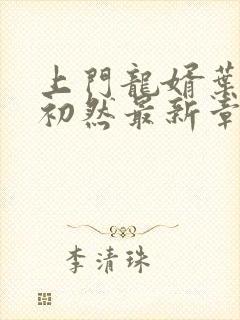 上門龍婿葉
初然最新章
李清珠